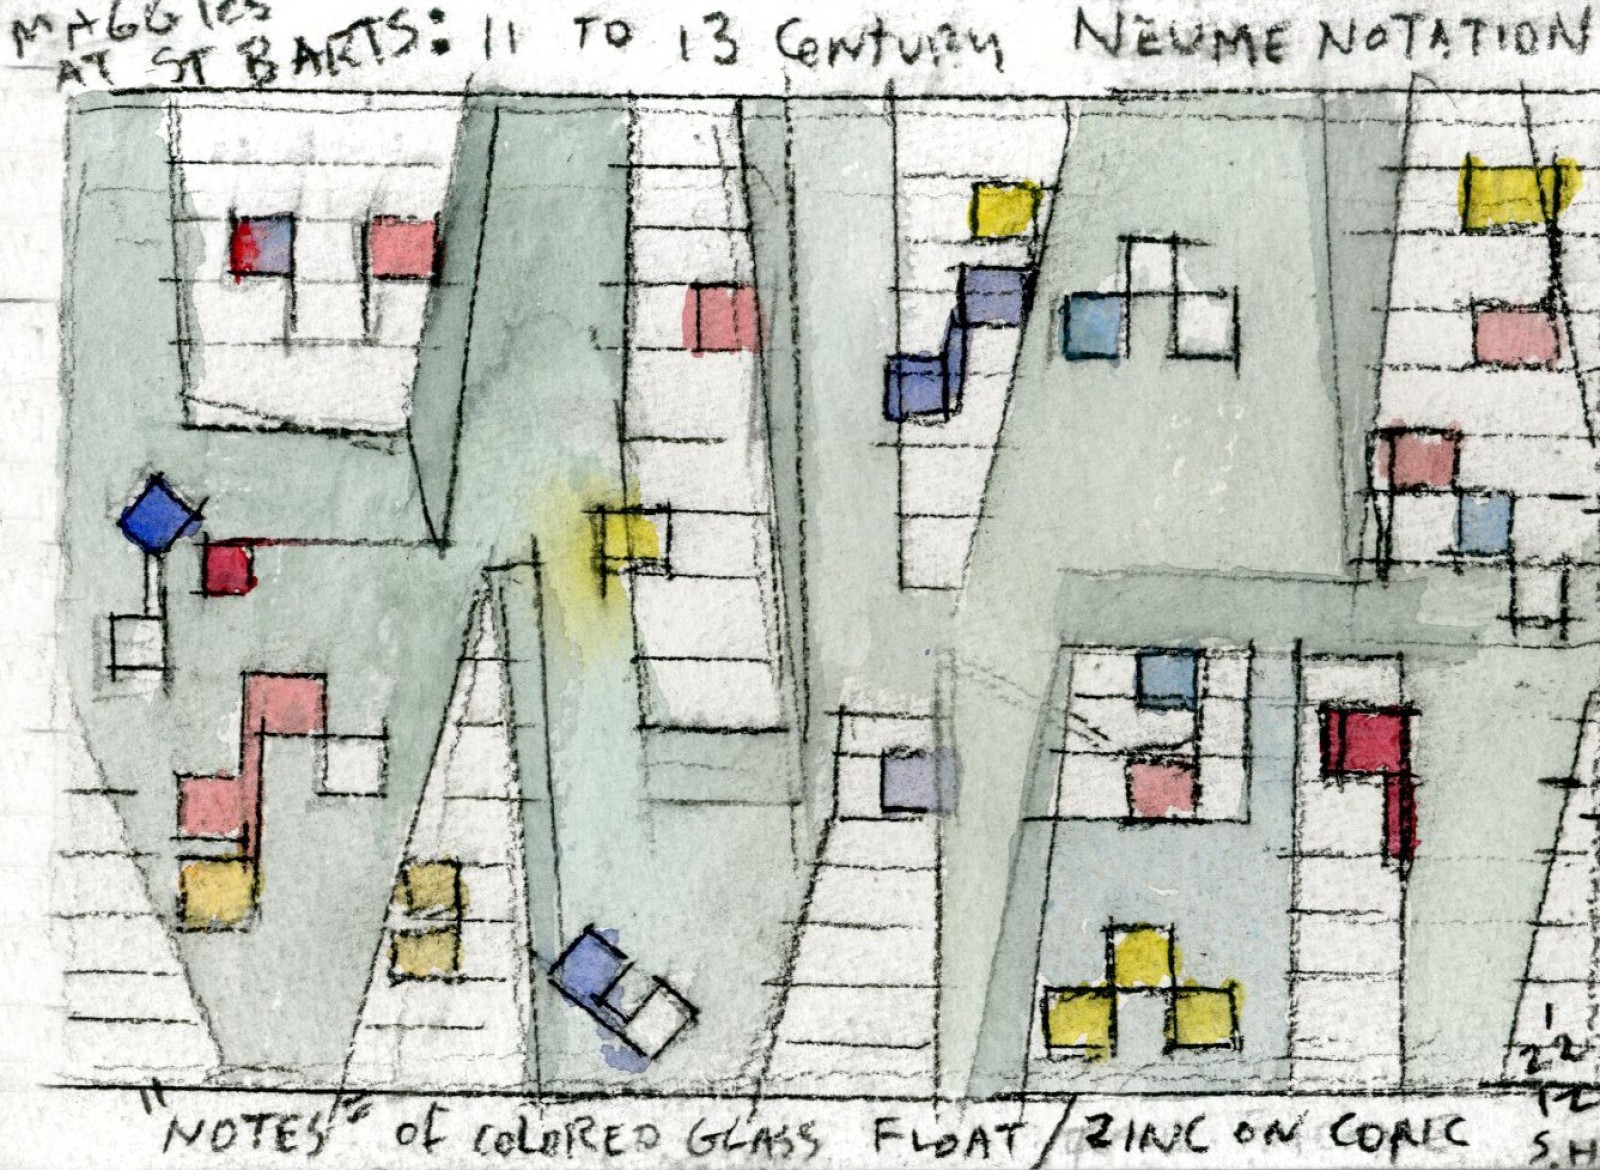 MAGGIES
AT ST BARTS: 11 TO 13 Century NEUME NOTATION
1
22
12
"NOTES" of COLORED GLASS FLOAT / ZINC ON CONC
S.H